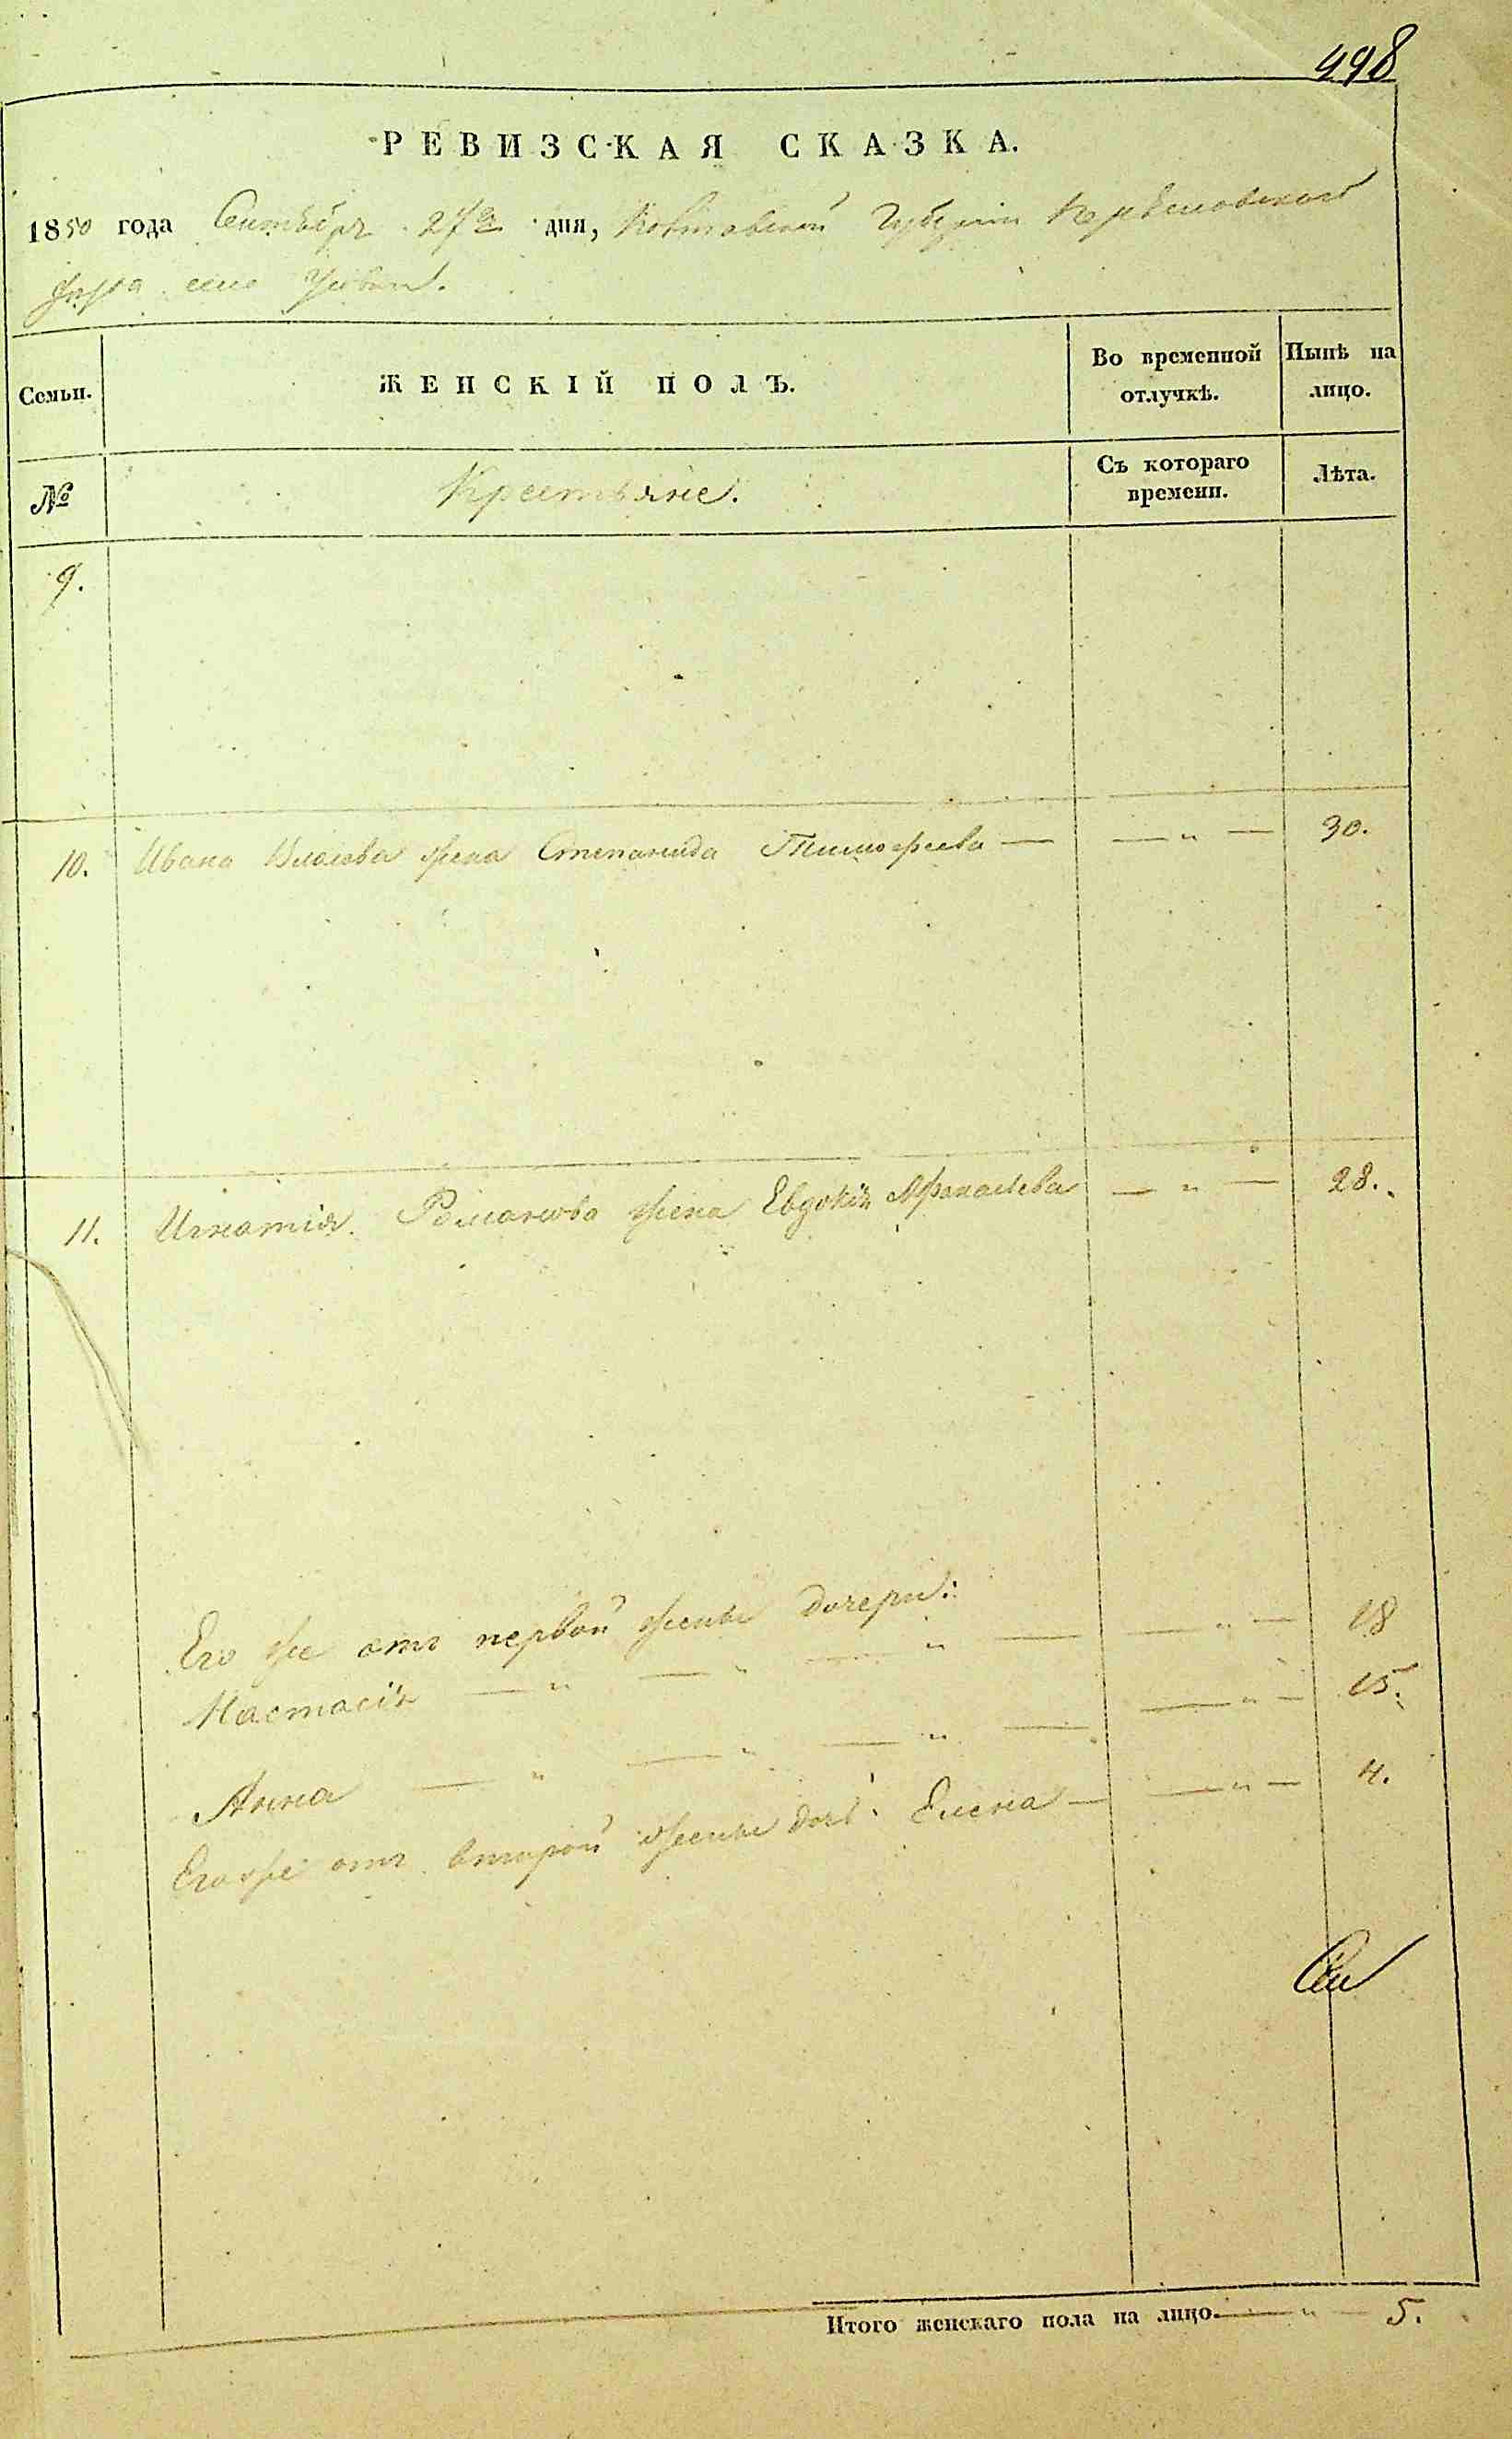 498
РЕВИЗСКАЯ СКАЗКА.
1850 года Сентября 27го дня, Полтавской Губерніи
села
Семьи. ЖЕНСКІЙ ПОЛЪ. Во временной отлучкѣ. Нынѣ на лицо.
№ Крестьяне. Съ котораго времени. Лѣта.
9.
10. Ивана Власова жена Степанида Тимофеева — — " — 30.
11. Игнатія Романова жена Евдокія Афанасьева — " — 28.
Его же отъ первой жены дочери:
Настасія — " — " — " — — " — 18
Анна — " — " — " — — " — 15.
Его же отъ второй жены дочь Елена — — " — 4.
Итого женскаго пола на лицо. — " — 5.